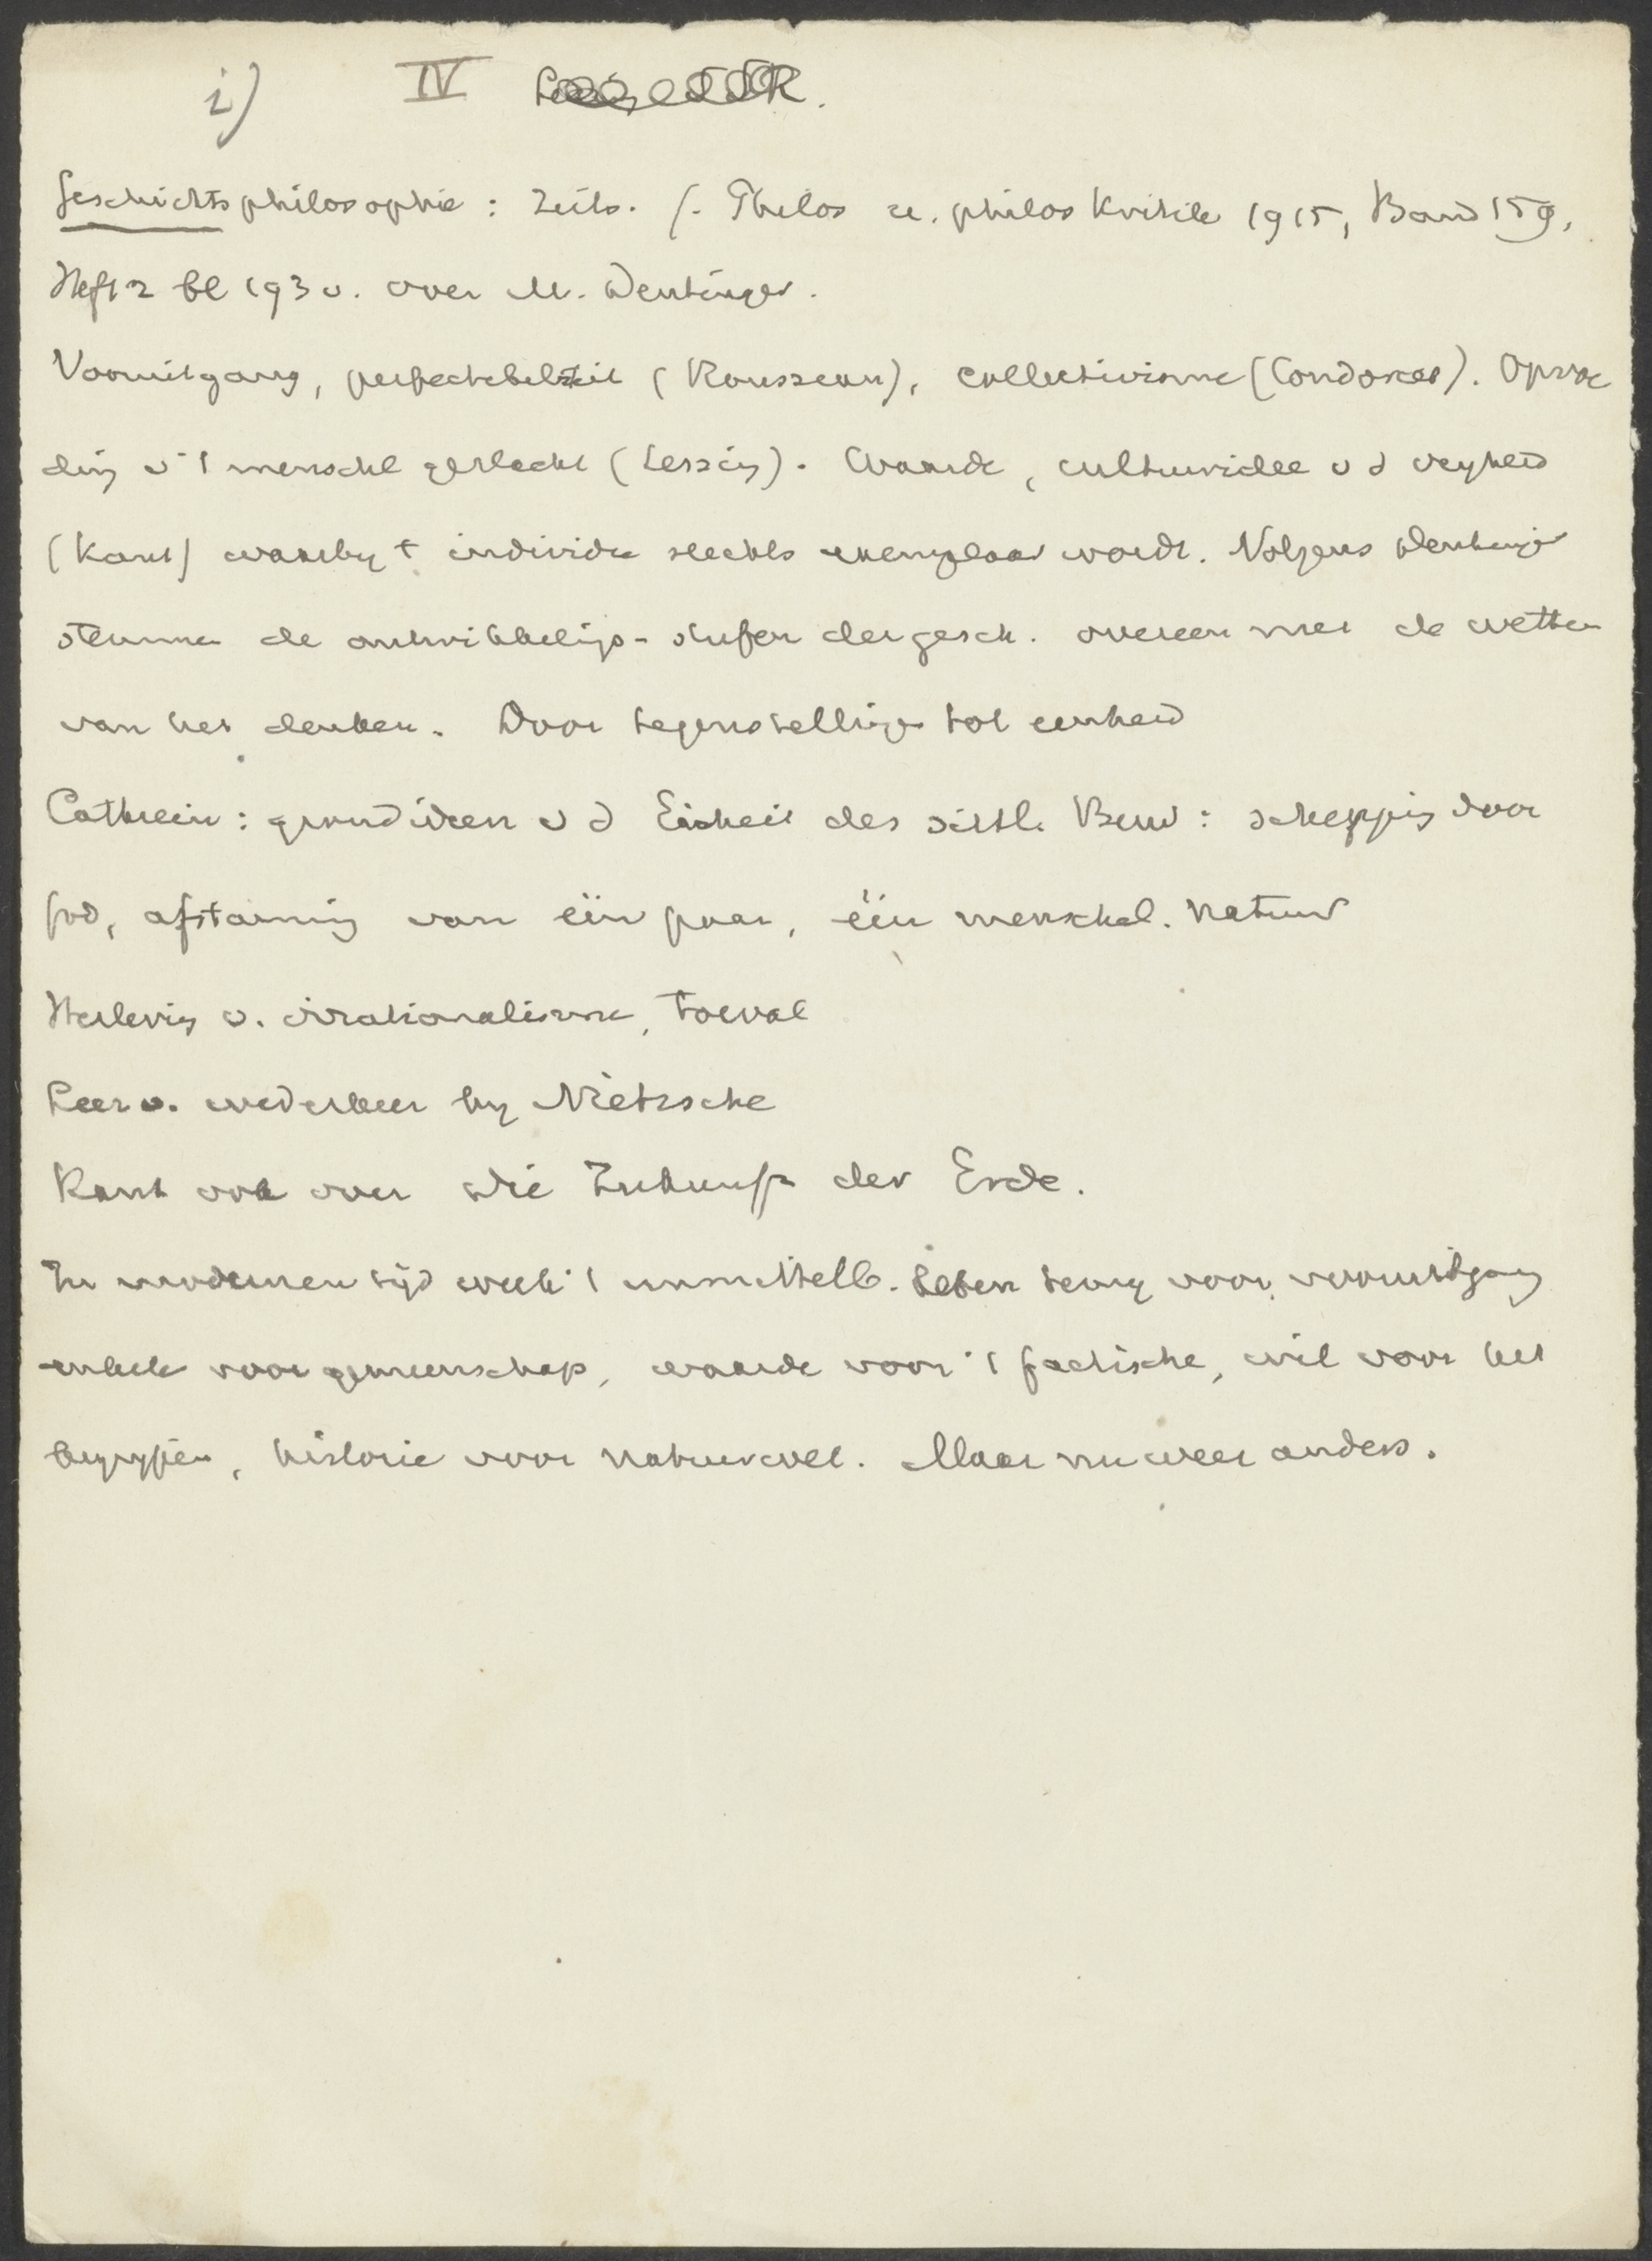 i) IV
Geschichtsphilosophie : Zeits. f. Philos u. philos Kritik 1915, Band 159,
Heft 2 bl 193 v. over M. Deutinger.
Vooruitgang, perfectebelteit (Rousseau), collectivisme (Condorcet). Opvoe
ding v 't menschel geslacht (Lessing). Waarde, cultuuridee v d vryheid
(Kant) waarby 't individu slechts exemplaar wordt. Volgens Deutinger
stemmen de ontwikkelings-stufen der gesch. overeen met de wetten
van het denken. Door tegenstelling tot eenheid
Cathrein: grondideen v d Einheit des sittl. Bew: schepping door
God, afstaming van één paar, één menschel. natuur
Herleving v. irrationalisme, toeval
Leer v. wederkeer by Nietzsche
Kant ook over die Zukunft der Erde.
In modernen tijd week 't unmittelb. Leben terug voor vooruitgang
enkele voor gemeenschap, waarde voor 't factische, wil voor het
begrypen, historie voor natuurwet. Maar nu weer anders.